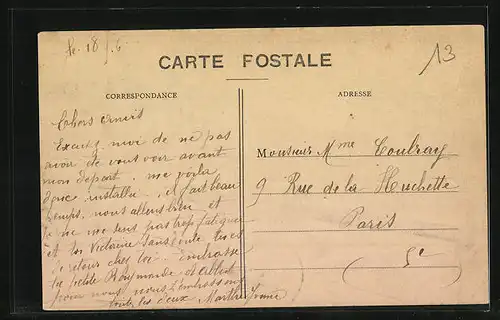 le 18/6
13
CARTE POSTALE
CORRESPONDANCE
ADRESSE
Chers amis
Excusez moi de ne pas
avoir été vous voir avant
mon départ. me voilà
donc installée, il fait beau
temps. nous allons bien et
je ne me sens pas trop fatiguée
et toi Victoire sans doute tu es
de retour chez toi. embrasse
la petite Raymonde et Albert
pour nous. nous t'embrassons
toutes les deux Marthe
Monsieur Mme Coulray
9 Rue de la Huchette
Paris
(5e